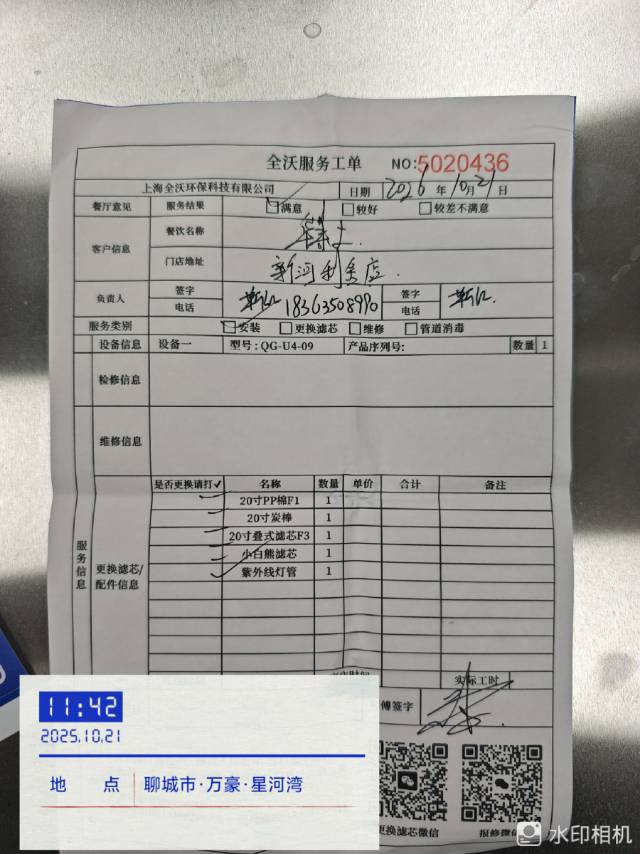 全沃服务工单 NO:5020436
上海全沃环保科技有限公司 日期 2026年10月21日
餐厅意见 服务结果 满意 较好 较差不满意
客户信息 餐饮名称
门店地址
负责人 签字 签字
电话 18363508990 电话
服务类别 安装 更换滤芯 维修 管道消毒
设备信息 设备一 型号:QG-U4-09 产品序列号: 数量 1
检修信息
维修信息
服务信息
更换滤芯/配件信息
是否更换请打✓ 名称 数量 单价 合计 备注
✓ 20寸PP棉F1 1
✓ 20寸炭棒 1
✓ 20寸叠式滤芯F3 1
✓ 小白熊滤芯 1
✓ 紫外线灯管 1
实际工时
傅签字
更换滤芯微信 报修微信
11:42
2025.10.21
地 点 聊城市·万豪·星河湾
水印相机